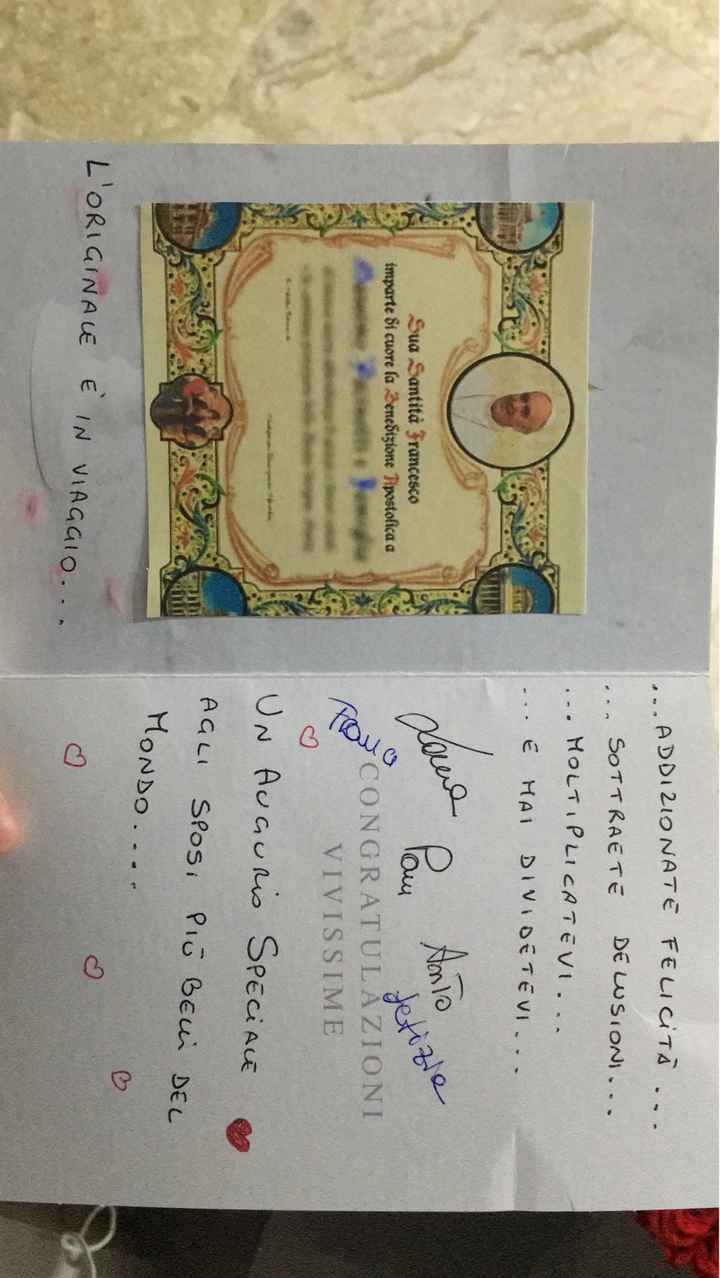 Sua Santità Francesco
imparte di cuore la Benedizione Apostolica a
L'ORIGINALE E' IN VIAGGIO...
...ADDIZIONATE FELICITÀ...
...SOTTRAETE DELUSIONI...
...MOLTIPLICATEVI...
...E MAI DIVIDETEVI...
Anto
Letizia
CONGRATULAZIONI
VIVISSIME
UN AUGURIO SPECIALE
AGLI SPOSI PIÙ BELLI DEL
MONDO....